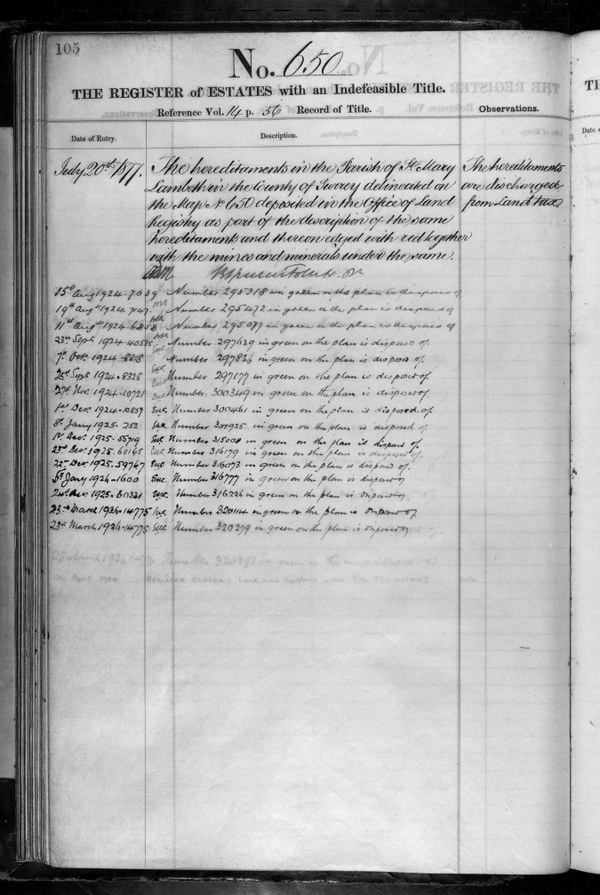 105
No. 650
THE REGISTER of ESTATES with an Indefeasible Title.
Reference Vol. 14 p. 56 Record of Title.
Observations.
Date of Entry.
Description.
July 20th 1877.
The hereditaments in the Parish of St. Mary
Lambeth in the County of Surrey delineated on
the Map No 650 deposited in the Office of Land
Registry as part of the description of the same
hereditaments and thereon edged with red together
with the mines and minerals under the same.
The hereditaments
are discharged
from Land tax
15th Aug 1924 - Number 295318 in green on the plan is disposed of
19th Augt 1924 - Number 295472 in green on the plan is disposed of
11th Augt 1924 - Number 295077 in green on the plan is disposed of
23rd Sept 1924 - Number 297629 in green on the plan is disposed of.
7th Oct. 1924 - 8818 Number 297826 in green on the plan is disposed of.
25th Sept 1924 - 8328 Number 297177 in green on the plan is disposed of
27th Nov. 1924 - 10721 Number 300349 in green on the plan is disposed of
1st Dec. 1924 - 10859 Number 300461 in green on the plan is disposed of
8th Jany 1925 - 252 Number 301925 in green on the plan is disposed of
1st Dec. 1925 - 55719 Number 315004 in green on the plan is disposed of.
23rd Dec. 1925 - 60165 Number 316179 in green on the plan is disposed of.
22nd Dec. 1925 - 59767 Number 316073 in green on the plan is disposed of.
Jany 1926 - 1600 Number 316777 in green on the plan is disposed of
Dec. 1925 - 60321 Number 316226 in green on the plan is disposed of.
23rd March 1926 - 14775 Number 320144 in green on the plan is disposed of
23rd March 1926 - 14775 Number 320279 in green on the plan is disposed of